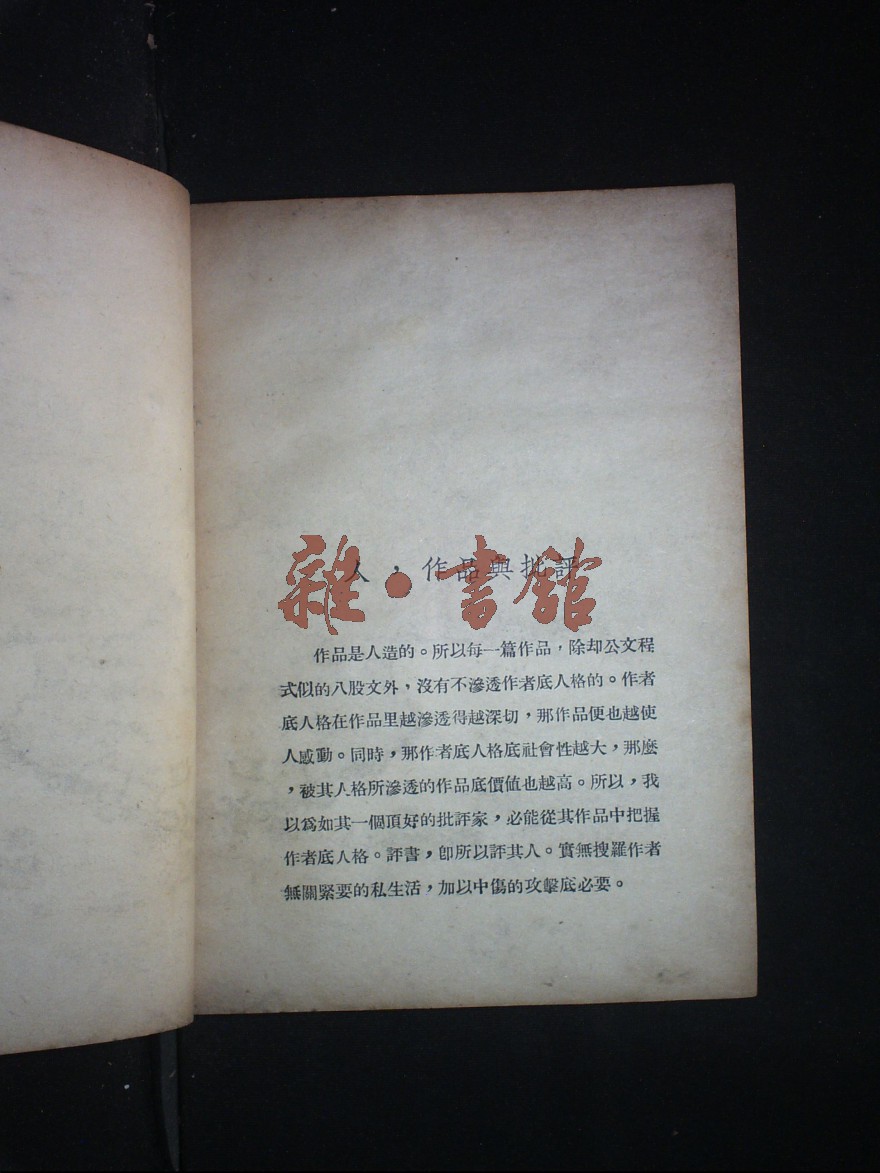 雜·書館
人，作品與批評
作品是人造的。所以每一篇作品，除却公文程
式似的八股文外，沒有不滲透作者底人格的。作者
底人格在作品里越滲透得越深切，那作品便也越使
人感動。同時，那作者底人格底社會性越大，那麼
，被其人格所滲透的作品底價値也越高。所以，我
以爲如其一個頂好的批評家，必能從其作品中把握
作者底人格。評書，卽所以評其人。實無搜羅作者
無關緊要的私生活，加以中傷的攻擊底必要。